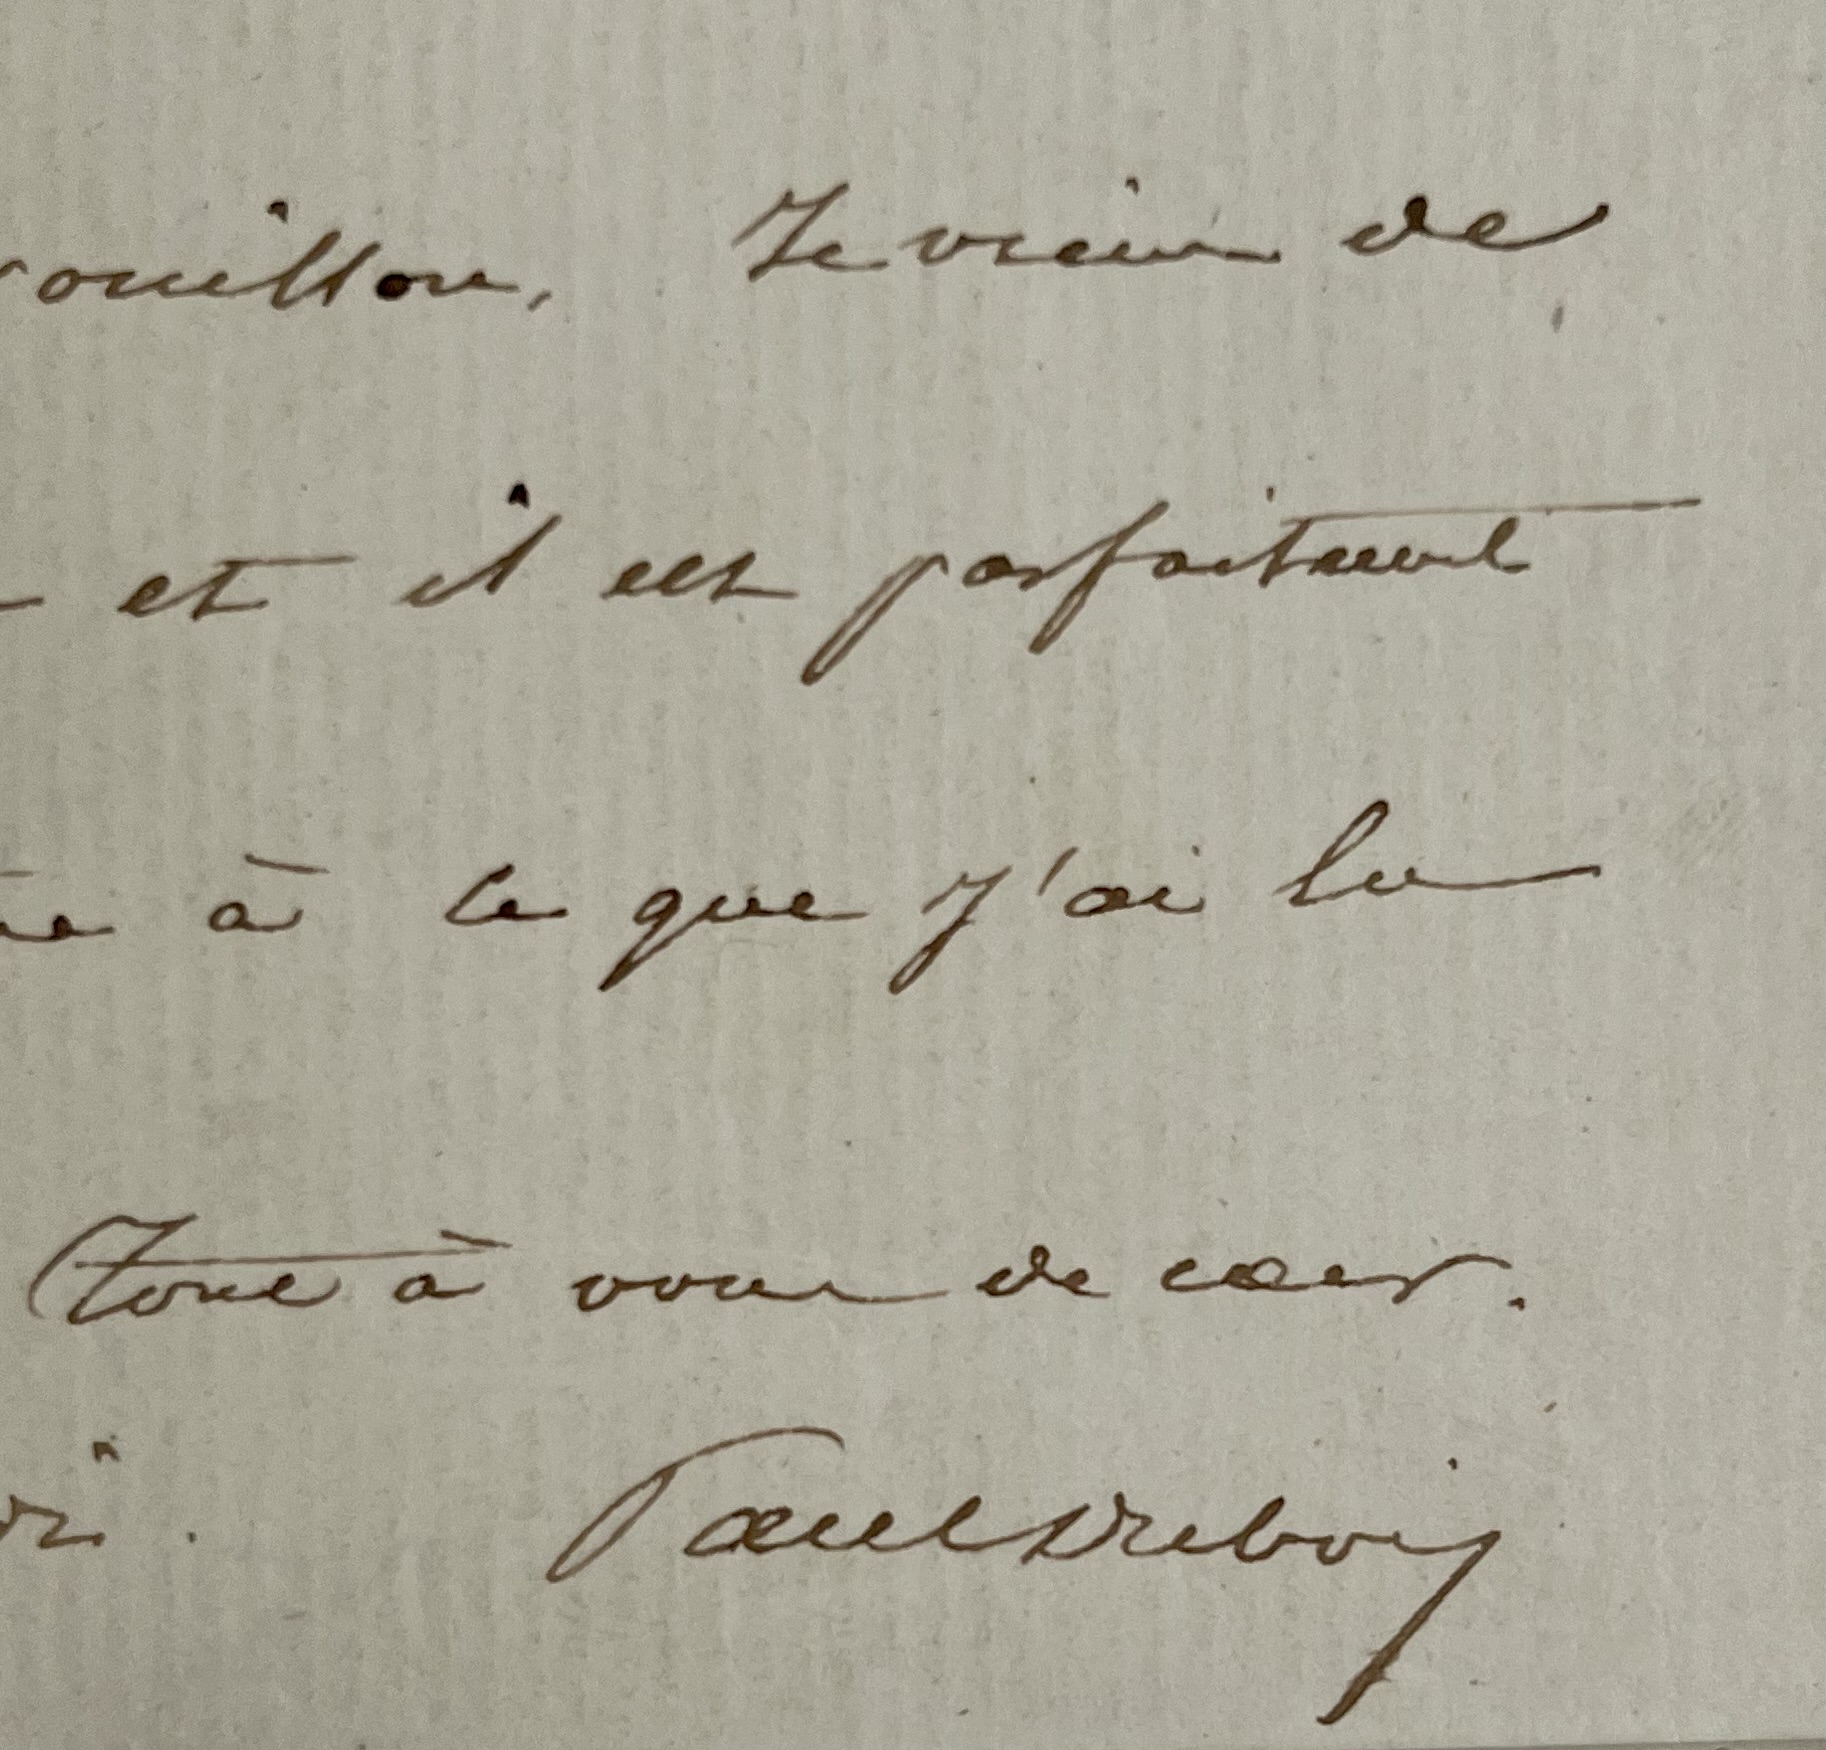 ouillon. Je viens de
et il est parfaitement
à ce que j'ai lu
Tout à vous de cœur.
Paul Dubois